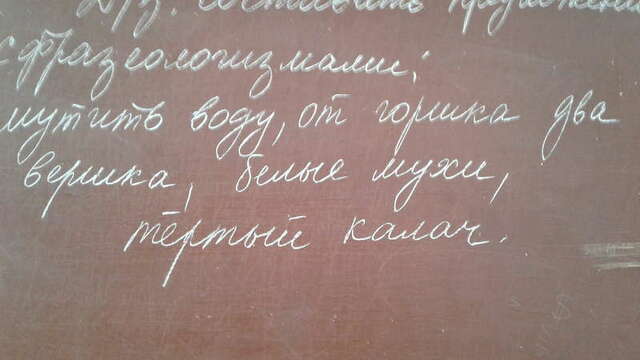 Д/з. Составить предложени
с фразеологизмами:
мутить воду, от горшка два
вершка, белые мухи,
тёртый калач.